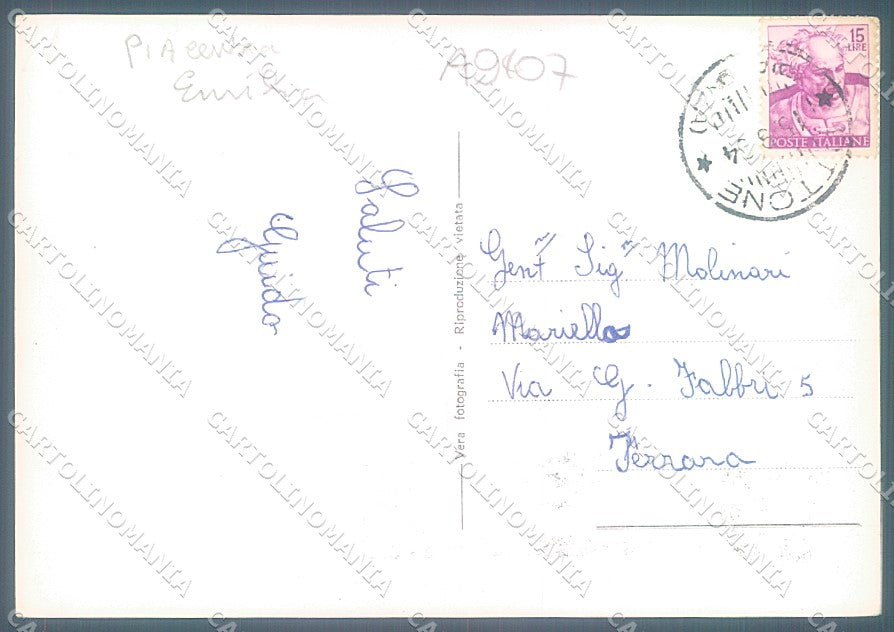 PIAcenza
Emilia
A9407
Saluti
Guido
Vera fotografia - Riproduzione vietata
15
LIRE
POSTE ITALIANE
Gent Sig Molinari
Mariella
Via G. Fabbri 5
Ferrara
CARTOLINOMANIA